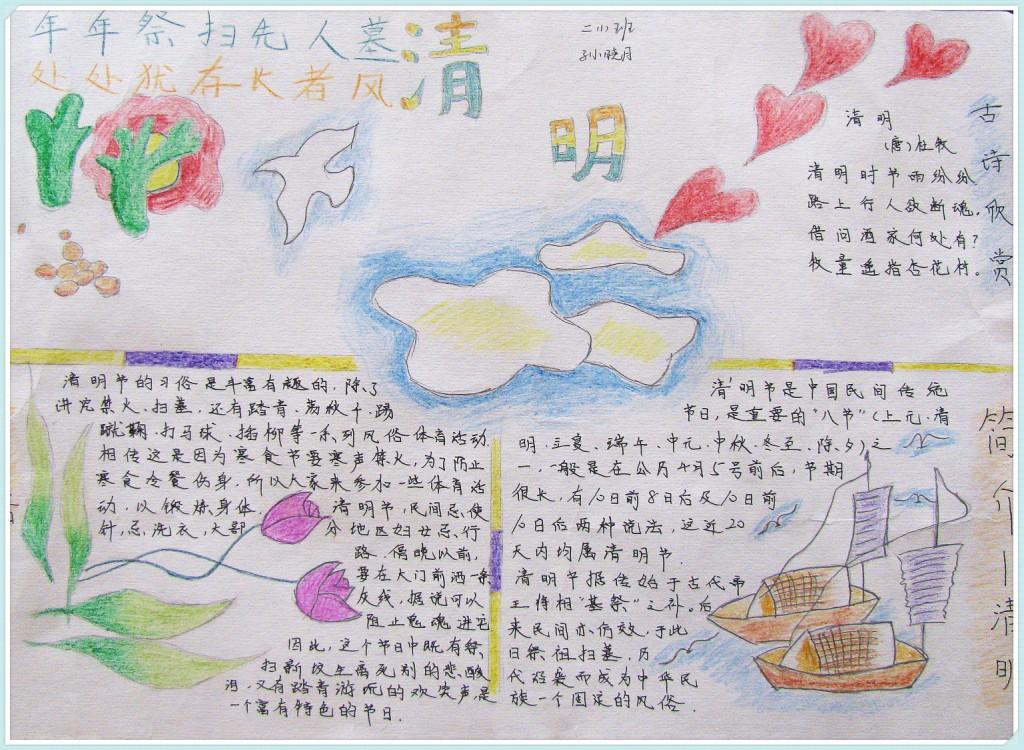 年年祭扫先人墓
处处犹存长者风
清
明
二小班
孙晓月
古诗欣赏
清明
(唐)杜牧
清明时节雨纷纷
路上行人欲断魂。
借问酒家何处有?
牧童遥指杏花村。
清明节的习俗是丰富有趣的,除了
讲究禁火、扫墓,还有踏青、荡秋千、踢
蹴鞠、打马球、插柳等一系列风俗体育活动
相传这是因为寒食节要寒声禁火,为了防止
寒食冷餐伤身,所以大家来参加一些体育活
动,以锻炼身体。
清明节,民间忌使
针,忌洗衣,大部
分地区妇女忌行
路。傍晚以前,
要在大门前洒一条
灰线,据说可以
阻止鬼魂进宅
因此,这个节日中既有祭
扫新坟生离死别的悲酸
泪,又有踏青游玩的欢笑声是
一个富有特色的节日.
简介|清明
清明节是中国民间传统
节日,是重要的“八节”(上元、清
明、立夏、端午、中元、中秋、冬至、除夕)之
一,一般是在公历4月5号前后,节期
很长,有10日前8日后及10日前
10日后两种说法,这近20
天内均属清明节.
清明节据传始于古代帝
王将相“墓祭”之礼。后
来民间亦仿效,于此
日祭祖扫墓,历
代沿袭而成为中华民
族一个固定的风俗.